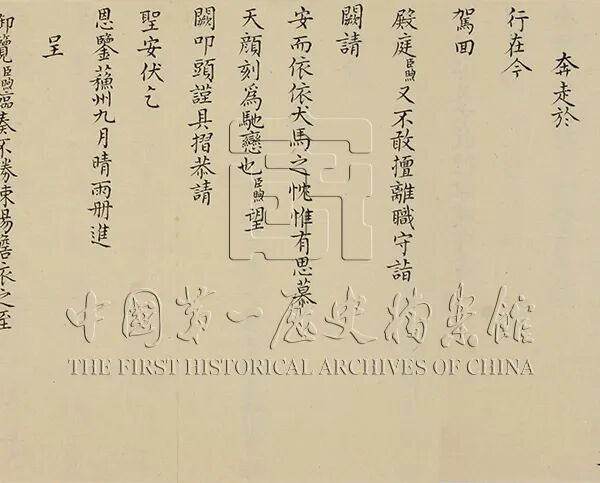 奔走於
行在今
駕回
殿庭臣煦又不敢擅離職守詣
闕請
安而依依犬馬之忱惟有思慕
天顏刻為馳戀也臣煦望
闕叩頭謹具摺恭請
聖安伏乞
恩鑒蘓州九月晴雨冊進
呈
御覽臣煦臨奏不勝悚惕瞻依之至
中國第一歷史檔案館
THE FIRST HISTORICAL ARCHIVES OF CHINA